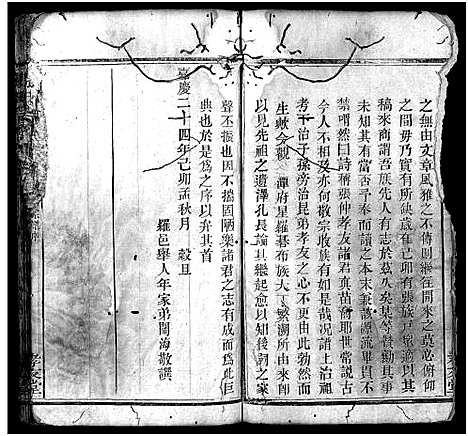 之無由文章風雅之不傳則繼往開來之莫必俯仰
之間毋乃實有所缺歲在己卯有張族戸
稿來商謂吾族先人有志於茲久矣某等
未知其有當否予奉而誦之本末兼該源流畢貫不
禁喟然曰詩稱張仲孝友諸君真苗裔耶世常說古
今人不相及亦何敬宗收族有如是哉况諸上治祖
考下治子孫旁治昆弟孝友之心不由此勃然而
生歟今觀潭府星羅碁布族大丁繁溯所由來即
以見先祖之遺澤孔長論其繼起愈以知後嗣之家
聲丕振也因不揣固陋樂諸君之志有成而爲此巨
典也於是爲之序以弁其首
嘉慶二十四年己卯孟秋月 穀旦
羅邑舉人年家弟閻海敬譔
孝友堂